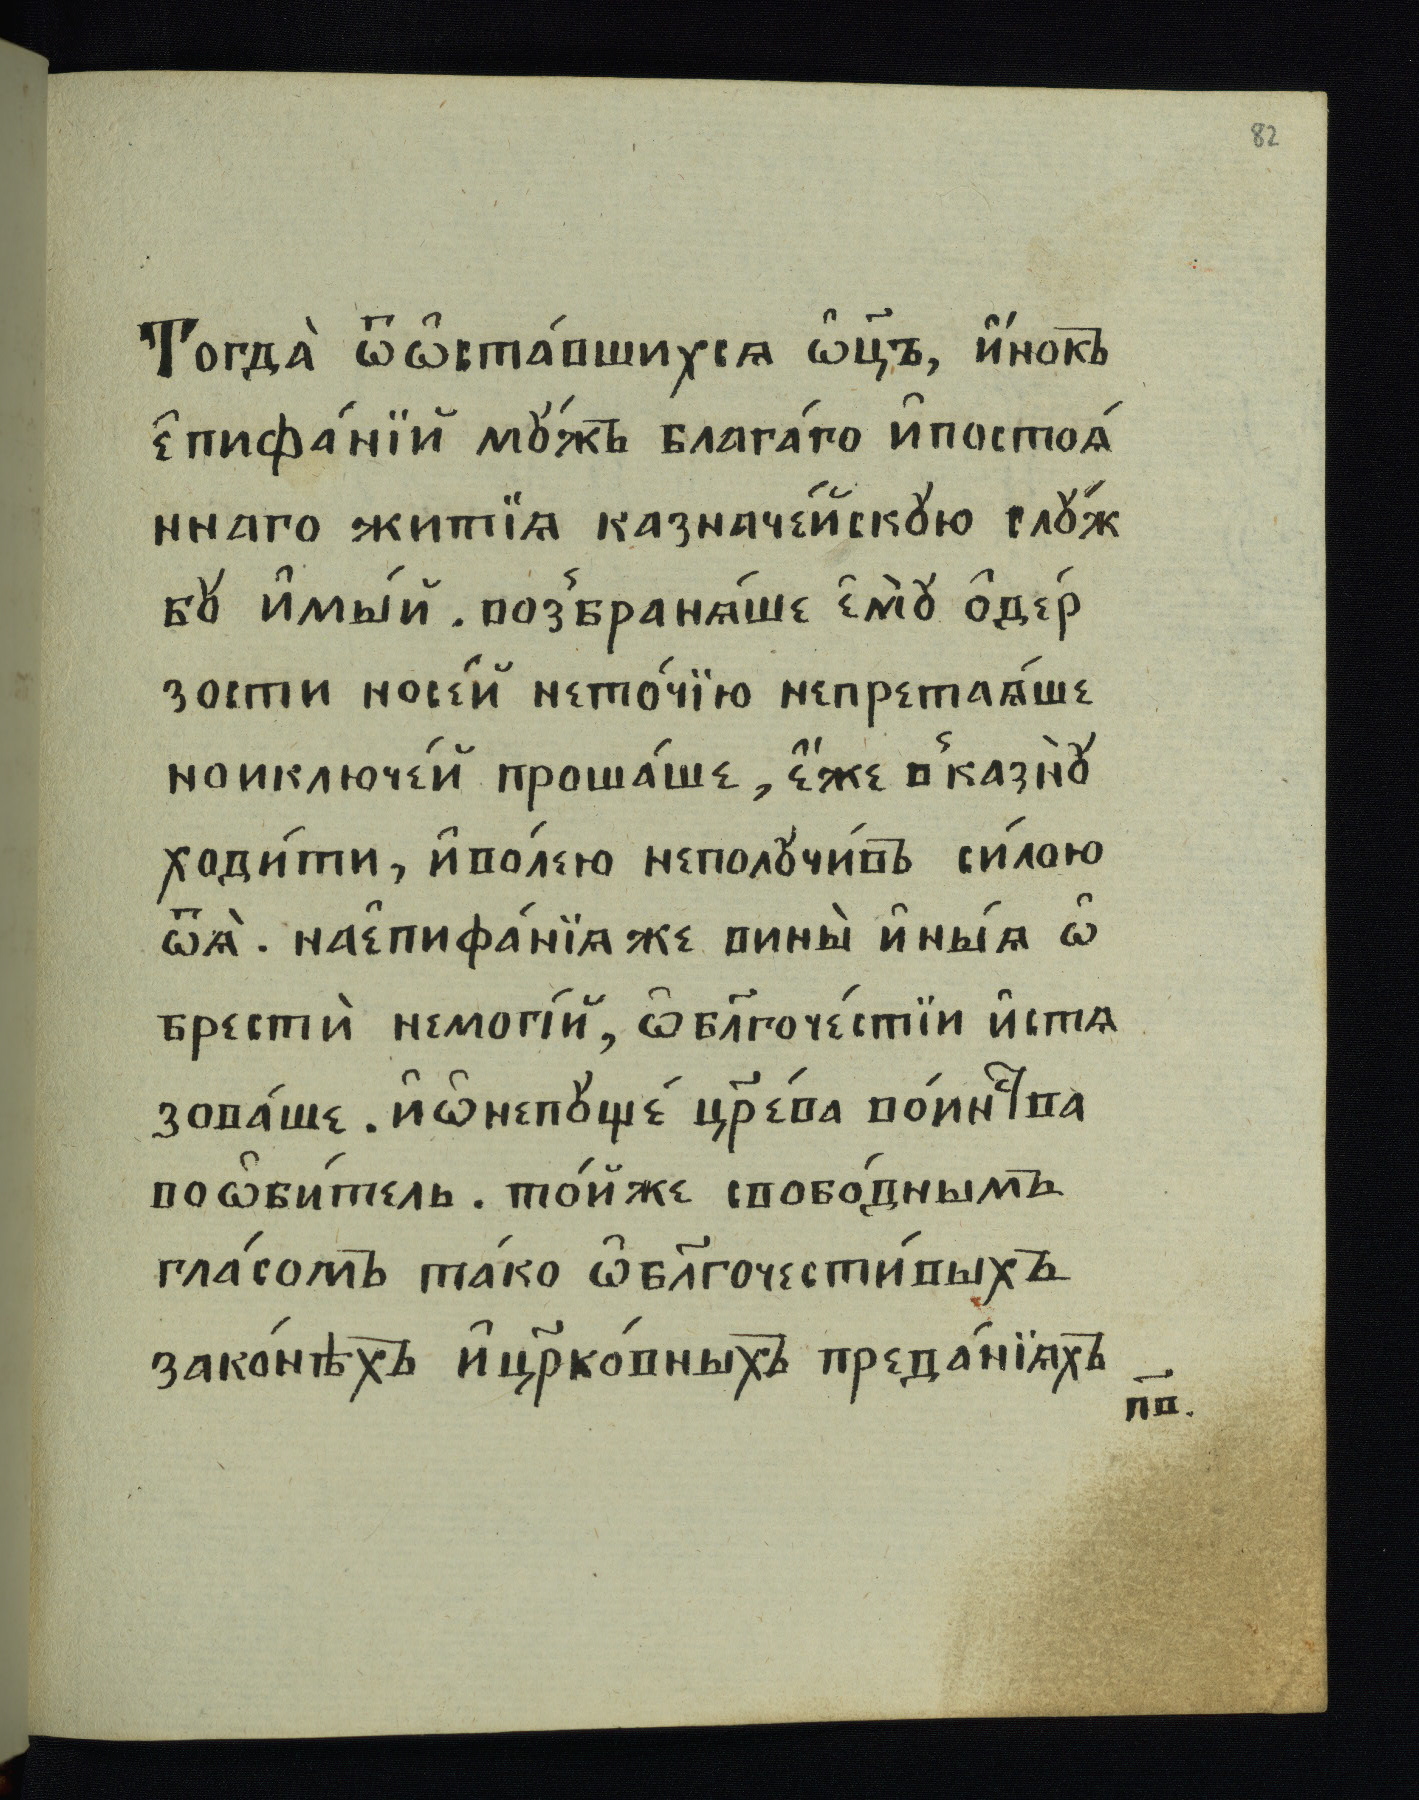 82
Тогда̀ ѿѡ̑ста́вшихсѧ ѡ̑ц҃ъ, и҆́нокъ
є҆пифа́нїй мꙋ́жъ блага́го и҆постоѧ́
ннаго житїѧ казначе́йскꙋю слꙋ́ж
бꙋ и҆мы́й. воз̾бранѧ́ше є҆мꙋ̀ о҆дер́
зости носе́й нето́чїю непретаѧ́ше
ноиключе́й проша́ше, є҆́же в̾казнꙋ̀
ходи́ти, и҆во́лею неполꙋчи́въ си́лою
ѿѧ̀. нає҆пифа́нїѧже вины̀ и҆ны́ѧ ѡ҆
брестѝ немогі́й, ѡ҆бл҃гоче́стїи и҆стѧ
зова́ше. и҆ѡ҆непꙋще́ цр҃е́ва во́инⷭ҇тва
воѡ҆би́тель. то́йже свобо́днымъ
гла́сомъ та́ко ѡ҆бл҃гочести́выхъ
зако́нѣхъ и҆цр҃ко́вныхъ преда́нїѧхъ
пв҃.